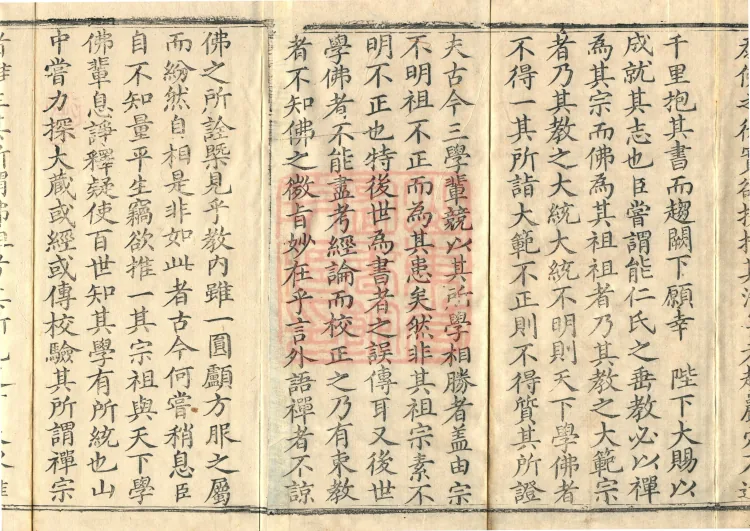 千里抱其書而趨闕下願幸 陛下大賜以
成就其志也臣嘗謂能仁氏之垂教必以禪
為其宗而佛為其祖祖者乃其教之大範宗
者乃其教之大統大統不明則天下學佛者
不得一其所詣大範不正則不得質其所證
夫古今三學輩競以其所學相勝者盖由宗
不明祖不正而為其患矣然非其祖宗素不
明不正也特後世為書者之誤傳耳又後世
學佛者不能盡考經論而校正之乃有束教
者不知佛之微旨妙在乎言外語禪者不諒
佛之所詮槩見乎教內雖一圓顱方服之屬
而紛然自相是非如此者古今何嘗稍息臣
自不知量平生竊欲推一其宗祖與天下學
佛輩息諍釋疑使百世知其學有所統也山
中嘗力探大藏或經或傳校驗其所謂禪宗